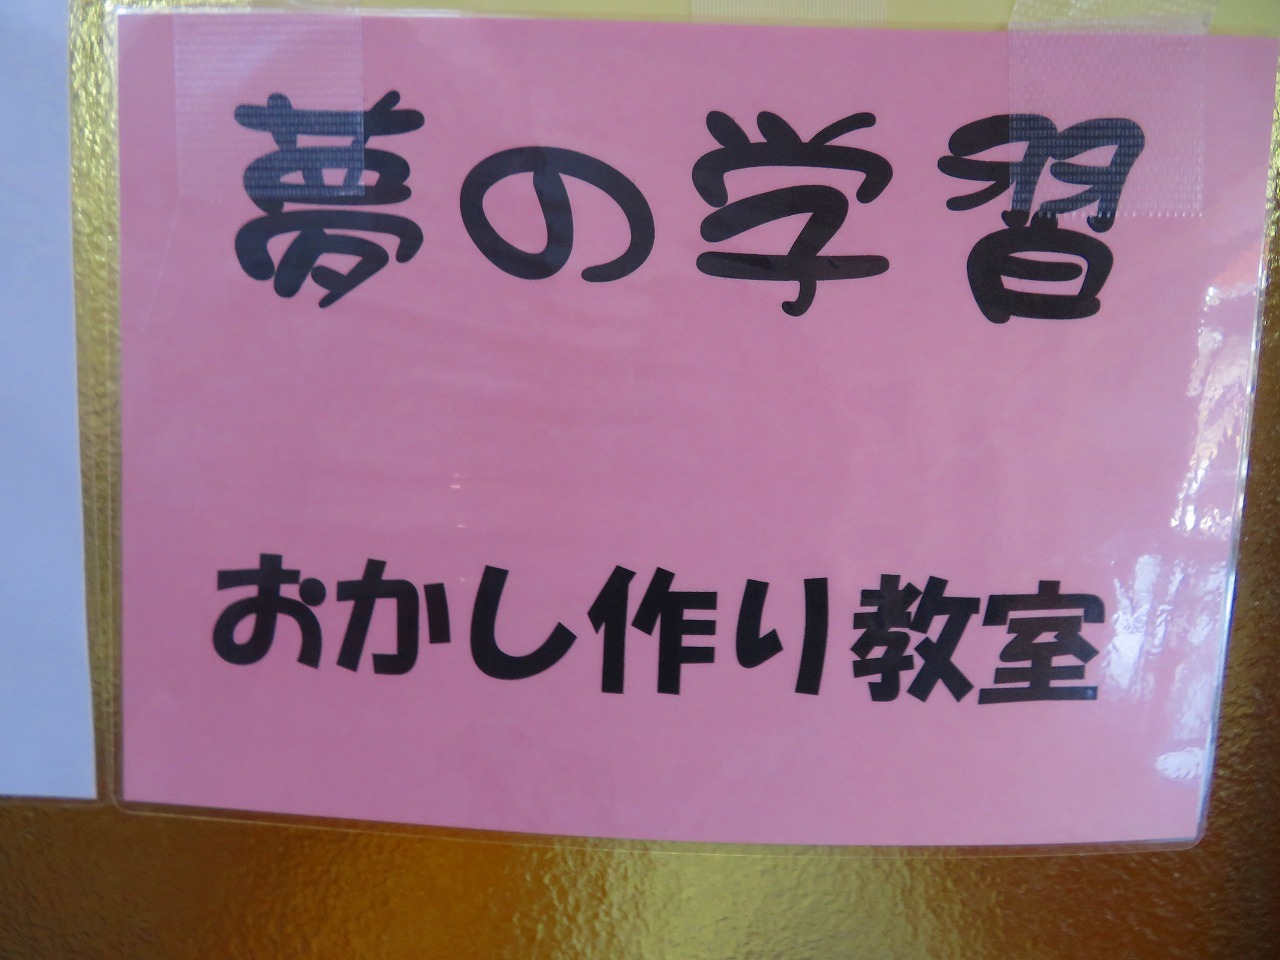 夢の学習
おかし作り教室